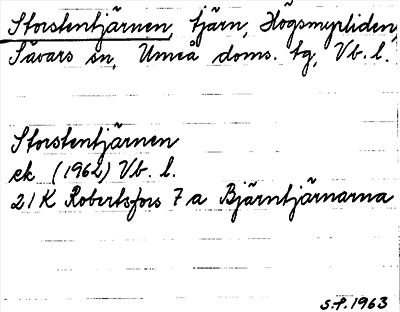 Storstentjärnen, tjärn, Högsmyrliden,
Sävars sn, Umeå doms. tg, Vb. l.
Storstentjärnen
ek (1962) Vb. l.
21 K Robertsfors 7 a Bjärntjärnarna
s.f. 1963